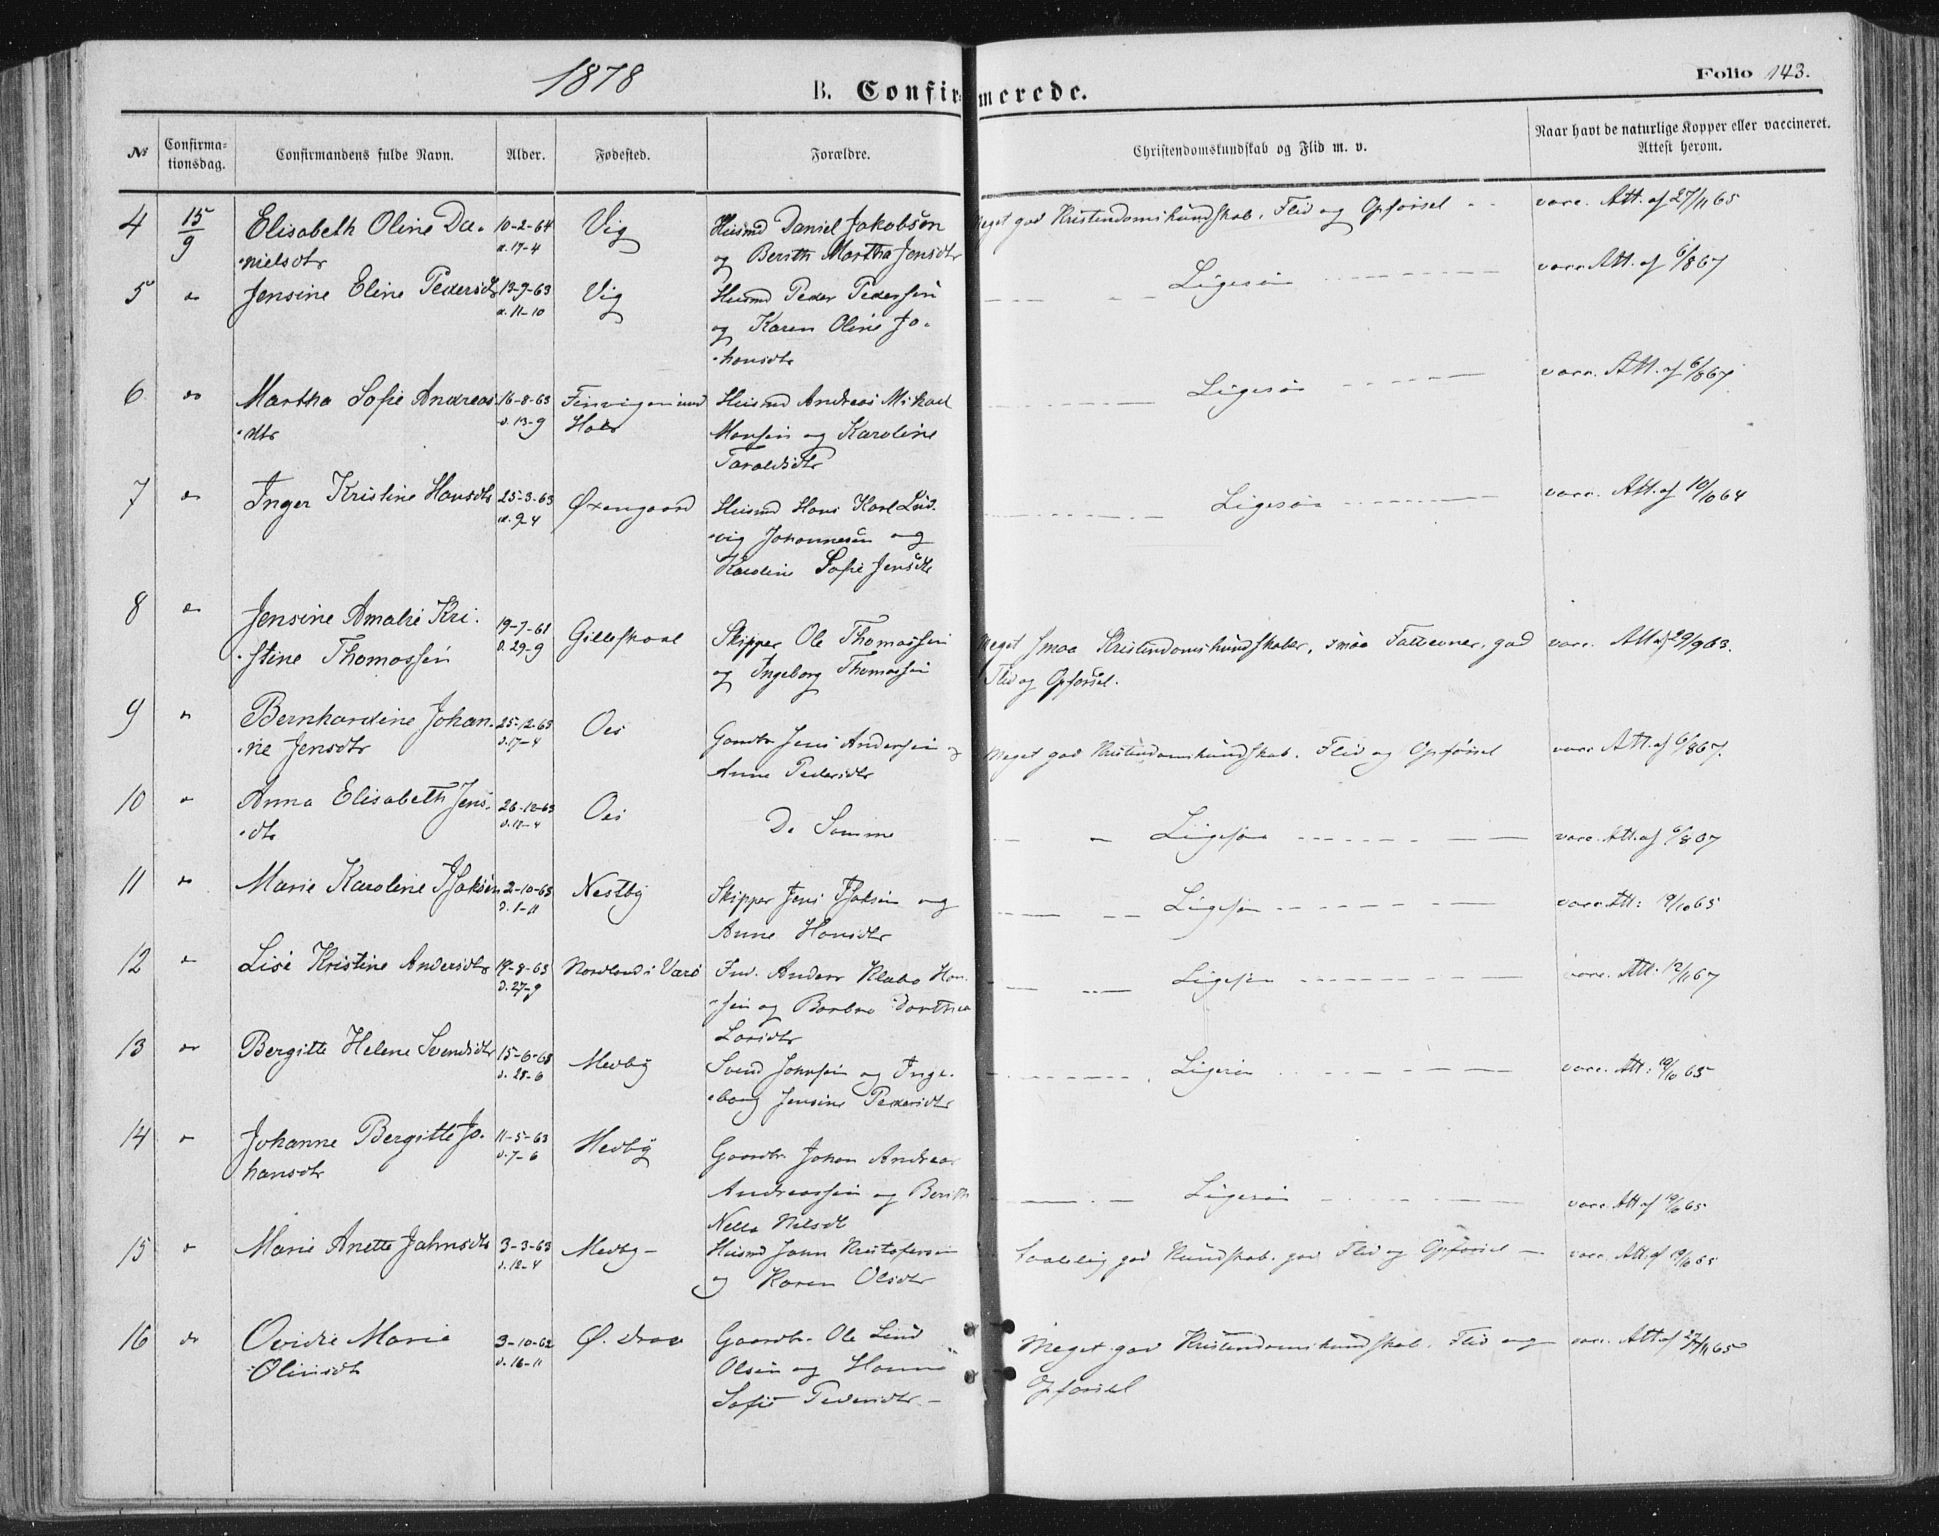 1878
B. Confirmerede.
Folio 143.
№ Confirmationsdag. Confirmandens fulde Navn. Alder. Fødested. Forældre. Christendomskundskab og Flid m. v. Naar havt de naturlige Kopper eller vaccineret. Attest herom.
4 15/9 Elisabeth Oline Da- 10-2-64 Vig Husmd Daniel Jakobsen Meget god Kristendomskundskab, Flid og Opførsel vacc. Att. af 27/11 65
nielsdtr d. 17-4 og Berith Martha Jensdtr
5 do Jensine Eline Pedersdtr 13-9-63 Vig Husmd Peder Pedersen Ligesaa vacc. Att. af 6/8 67
d. 11-10 og Karen Oline Jo-
hansdtr
6 do Martha Sofie Andreas- 16-8-63 Husmd Andreas Mikael Ligesaa vacc. Att. af 6/8 67
dtr d. 13-9 Hals Monsen og Karoline
Taraldsdtr
7 do Inger Kristine Hansdtr 25-3-63 Øxengaard Husmd Hans Karl Lud- Ligesaa vacc. Att. af 10/10 64
d. 9-4 vig Johannesen og
Karoline Sofie Jensdtr
8 do Jensine Amalie Kri- 19-7-61 Gilleskaal Skipper Ole Thomassen Meget smaa Kristendomskundskaber, smaa Talevner, god vacc. Att af 29/9 63.
stine Thomassen d. 29-9 og Ingeborg Thomassen Flid og Opførsel.
9 do Bernhardine Johan- 25-12-63 Oes Gaardbr Jens Andersen og Meget god Kristendomskundskab, Flid og Opførsel vacc. Att. af 6/8 67.
ne Jensdtr d. 17-4 Anne Pedersdtr
10 do Anna Elisabeth Jens- 26-12-63 Oes De Samme Ligesaa vacc. Att. af 6/8 67
dtr d. 17-4
11 do Marie Karoline Isaksen 2-10-63 Nestby Skipper Jens Isaksen og Ligesaa vacc. Att: 19/10 65
d. 1-11 Anne Hansdtr
12 do Lise Kristine Andersdtr 19-8-63 Nordland i Værø Anders Klabo Han- Ligesaa vacc. Att: 12/11 67
d. 27-9 sen og Barbro Dorthea
Larsdtr
13 do Bergitte Helene Svendsdtr 15-6-63 Medby Svend Johnsen og Inge- Ligesaa vacc. Att: 19/10 65
d. 28-6 borg Jensine Pedersdtr
14 do Johanne Bergitte Jo- 11-5-63 Medby Gaardbr Johan Andreas
hansdtr d. 7-6 Andreassen og Berith Ligesaa vacc. Att af 19/10 65
Nella Nilsdtr
15 do Marie Anette Jahnsdtr 3-3-63 Medby Husmd Jahn Kristofersen god Kundskab, god Flid og Opførsel vacc. Att. af 19/10 65
d. 12-4 og Karen Olsdtr
16 do Ovidie Marie 3-10-62 Ø. Gaardbr. Ole Lind Meget god Kristendomskundskab, Flid og vacc. Att af 27/11 65
Olinsdtr d. 16-11 Olsen og Hanna Opførsel
Sofie Pedersdtr.